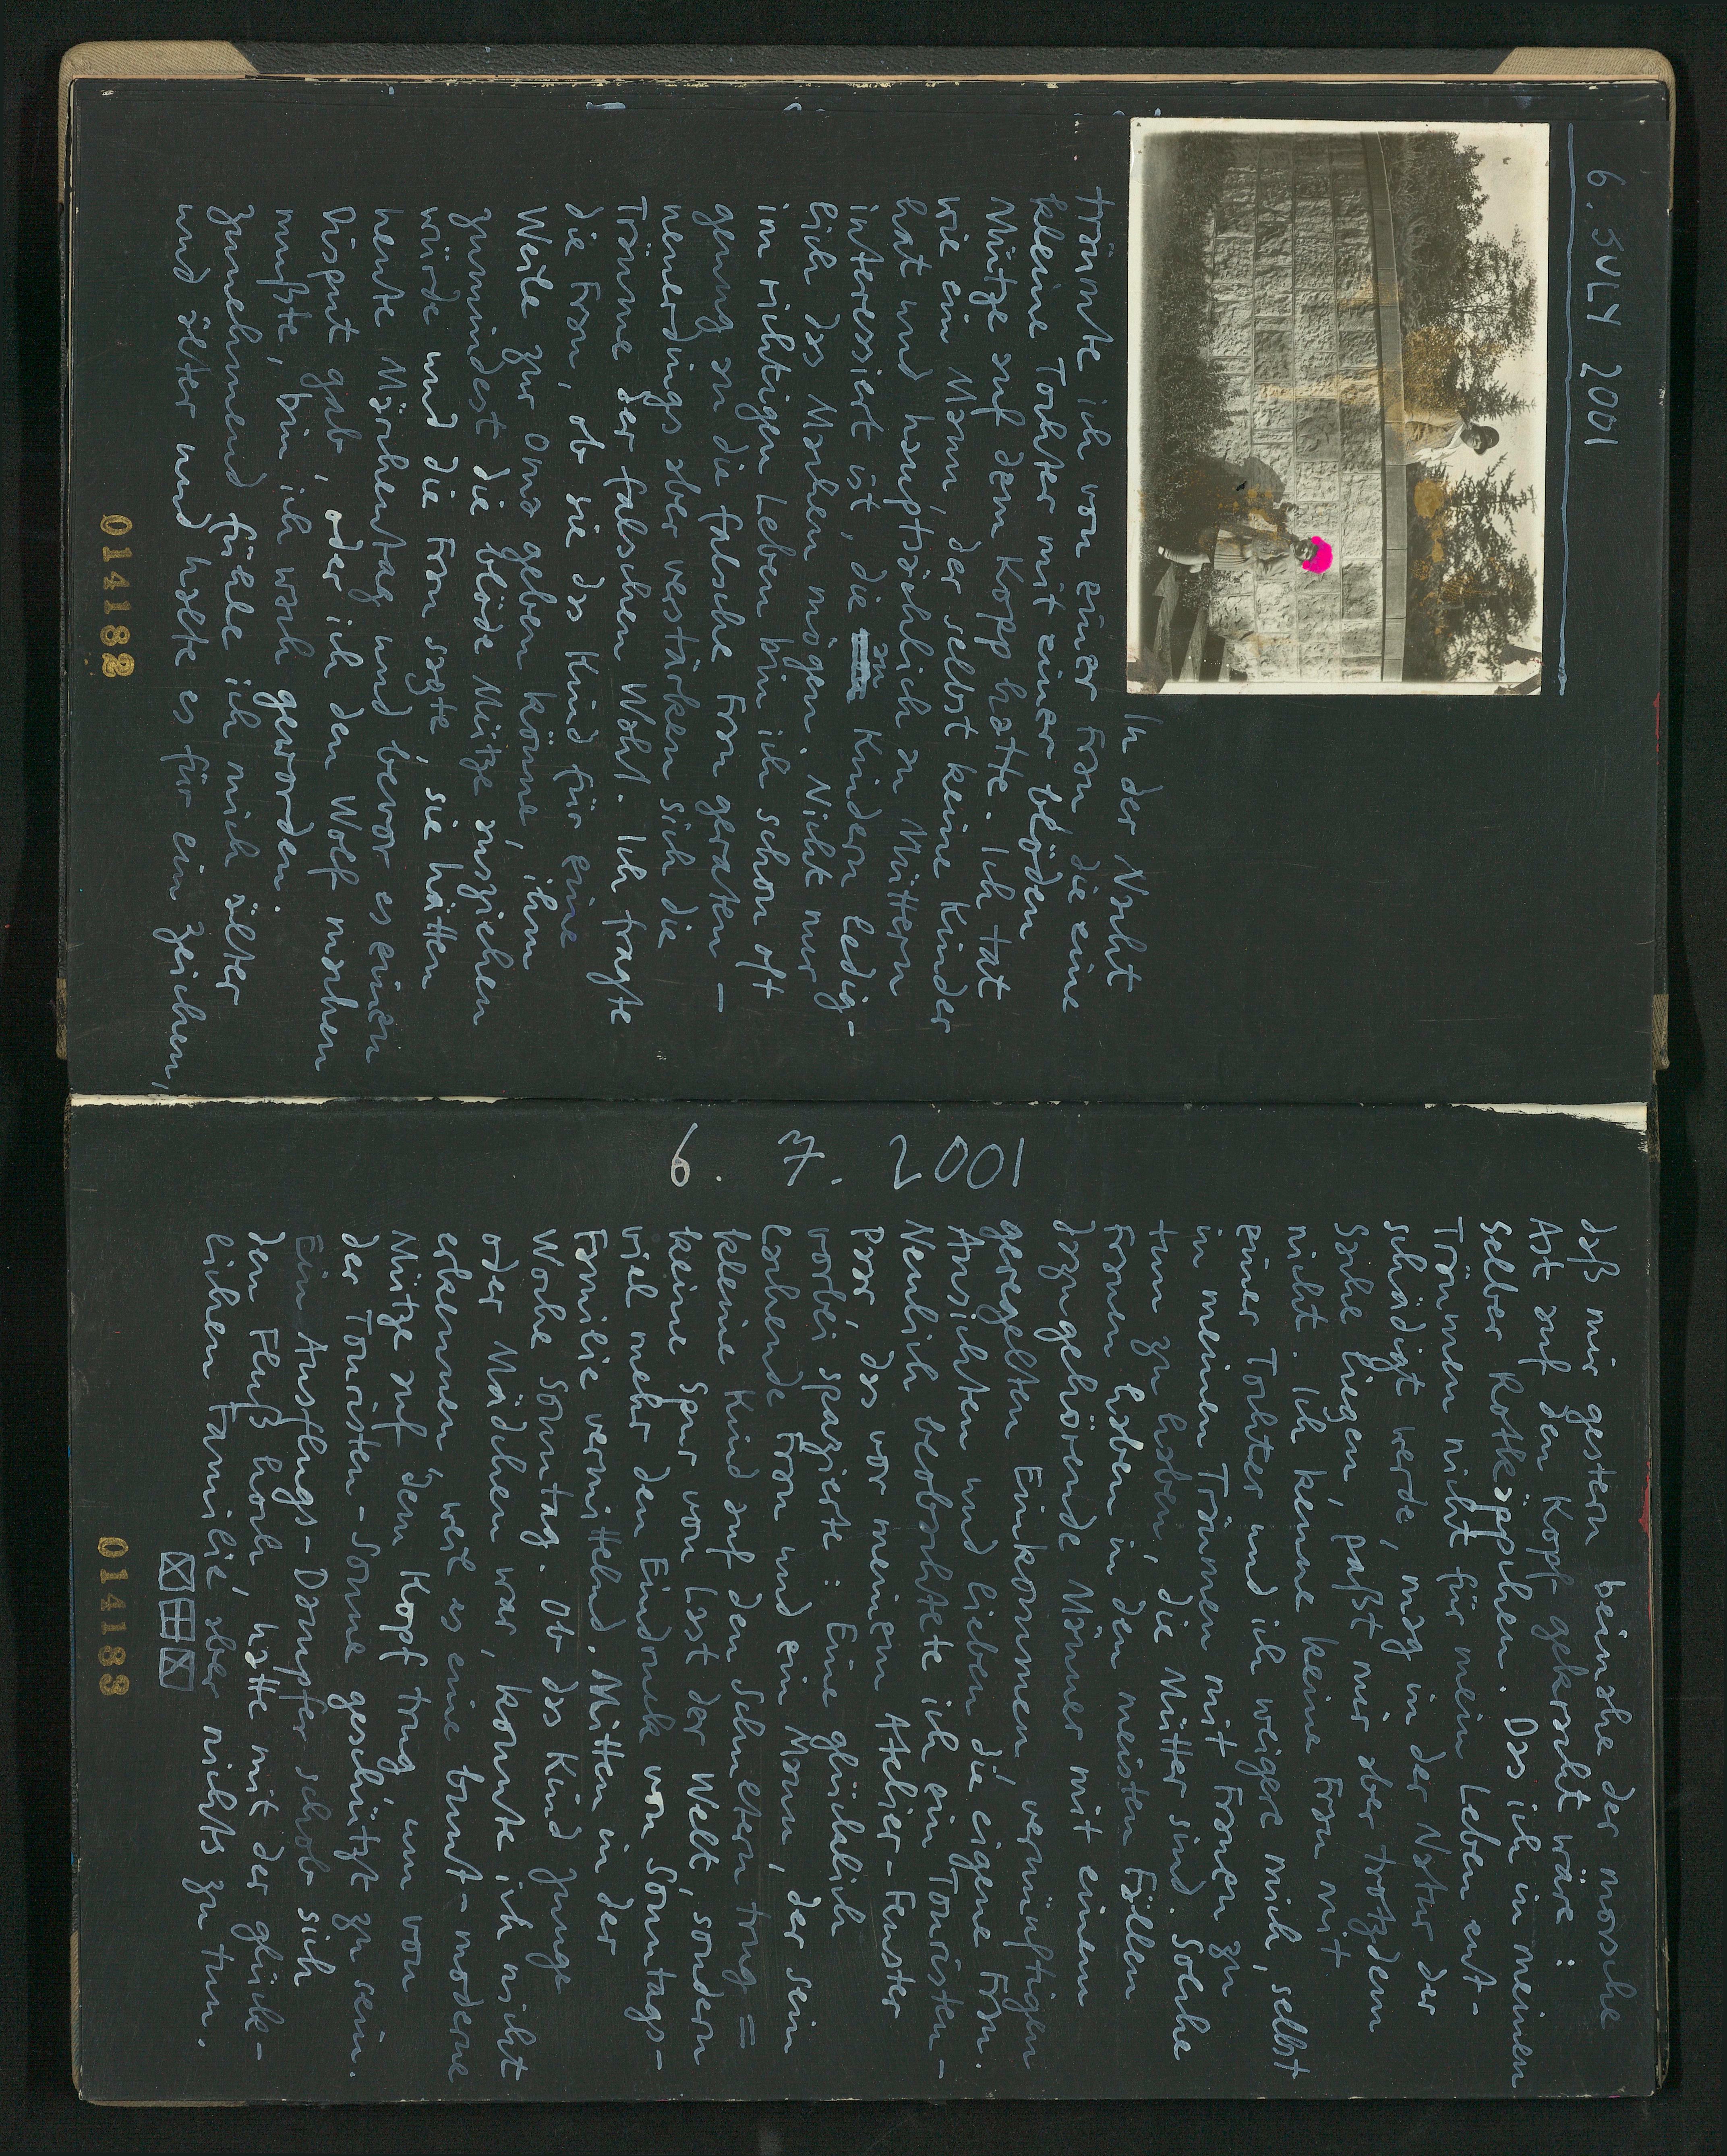 6. JULY 2001
In der Nacht
träumte ich von einer Frau die eine
kleine Tochter mit einer blöden
Mütze auf dem Kopp hatte. Ich tat
wie ein Mann, der selbst keine Kinder
hat und hauptsächlich an Müttern
interessiert ist, die an Kindern ledig-
lich das Machen mögen. Nicht nur
im richtigen Leben bin ich schon oft
genug an die falsche Frau geraten –
neuerdings aber verstärken sich die
Träume der falschen Wahl. Ich fragte
die Frau, ob sie das Kind für eine
Weile zur Oma geben könne, ihm
zumindest die blöde Mütze ausziehen
würde und die Frau sagte, sie hätten
heute Märchentag und bevor es einen
Disput gab, oder ich den Wolf machen
mußte, bin ich wach geworden.
Zunehmend fühle ich mich älter
und älter und halte es für ein Zeichen,
014182
6. 7. 2001
daß mir gestern beinahe der morsche
Ast auf den Kopf gekracht wäre:
Selber Rotkäppchen. Das ich in meinen
Träumen nicht für mein Leben ent-
schädigt werde, mag in der Natur der
Sache liegen, paßt mir aber trotzdem
nicht. Ich kenne keine Frau mit
einer Tochter und ich weigere mich, selbst
in meinen Träumen mit Frauen zu
tun zu haben, die Mütter sind. Solche
Frauen haben in den meisten Fällen
dazugehörende Männer mit einem
geregelten Einkommen, vernünftigen
Ansichten und lieben die eigene Frau.
Neulich beobachtete ich ein Touristen-
Paar, das vor meinem Atelier-Fenster
vorbei spazierte: Eine glücklich
lachende Frau und ein Mann, der sein
kleine Kind auf den Schultern trug =
keine Spur von Last der Welt, sondern
viel mehr den Eindruck von Sonntags-
Familie vermittelnd. Mitten in der
Woche Sonntag. Ob das Kind Junge
oder Mädchen war, konnte ich nicht
erkennen, weil es eine bunt-moderne
Mütze auf dem Kopf trug um von
der Touristen-Sonne geschützt zu sein.
Ein Ausflugs-Dampfer schob sich
den Fluß hoch, hatte mit der glück-
lichen Familie aber nichts zu tun.
014183